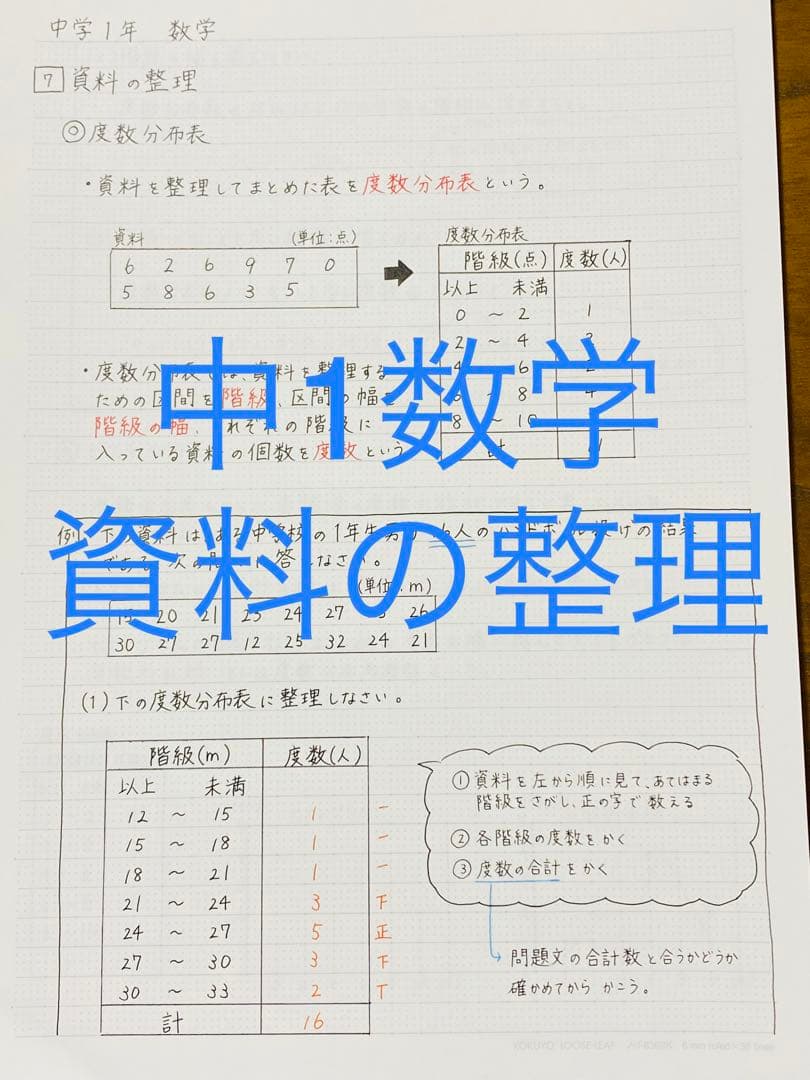 中学1年 数学
7 資料の整理
◎度数分布表
・資料を整理してまとめた表を度数分布表という。
資料 (単位:点)
6 2 6 9 7 0
5 8 6 3 5
度数分布表
階級(点) 度数(人)
以上 未満
0 ~ 2 1
2 ~ 4
6
~ 8 4
8 ~ 10
計
・度数分布表では、資料を整理する
ための区間を階級、区間の幅
階級の幅、それぞれの階級に
入っている資料の個数を度数という
中1数学
資料の整理
例 下の資料は、ある中学校の1年生男 人のハンドボール投げの結果
である。次の問 に答 なさい。
(単位:m)
20 21 23 24 27 26
30 27 27 12 25 32 24 21
(1)下の度数分布表に整理しなさい。
階級(m) 度数(人)
以上 未満
12 ~ 15 1 一
15 ~ 18 1 一
18 ~ 21 1 一
21 ~ 24 3 下
24 ~ 27 5 正
27 ~ 30 3 下
30 ~ 33 2 T
計 16
①資料を左から順に見て、あてはまる
階級をさがし、正の字で数える
②各階級の度数をかく
③度数の合計をかく
問題文の合計数と合うかどうか
確かめてから かこう。
KOKUYO LOOSE-LEAF